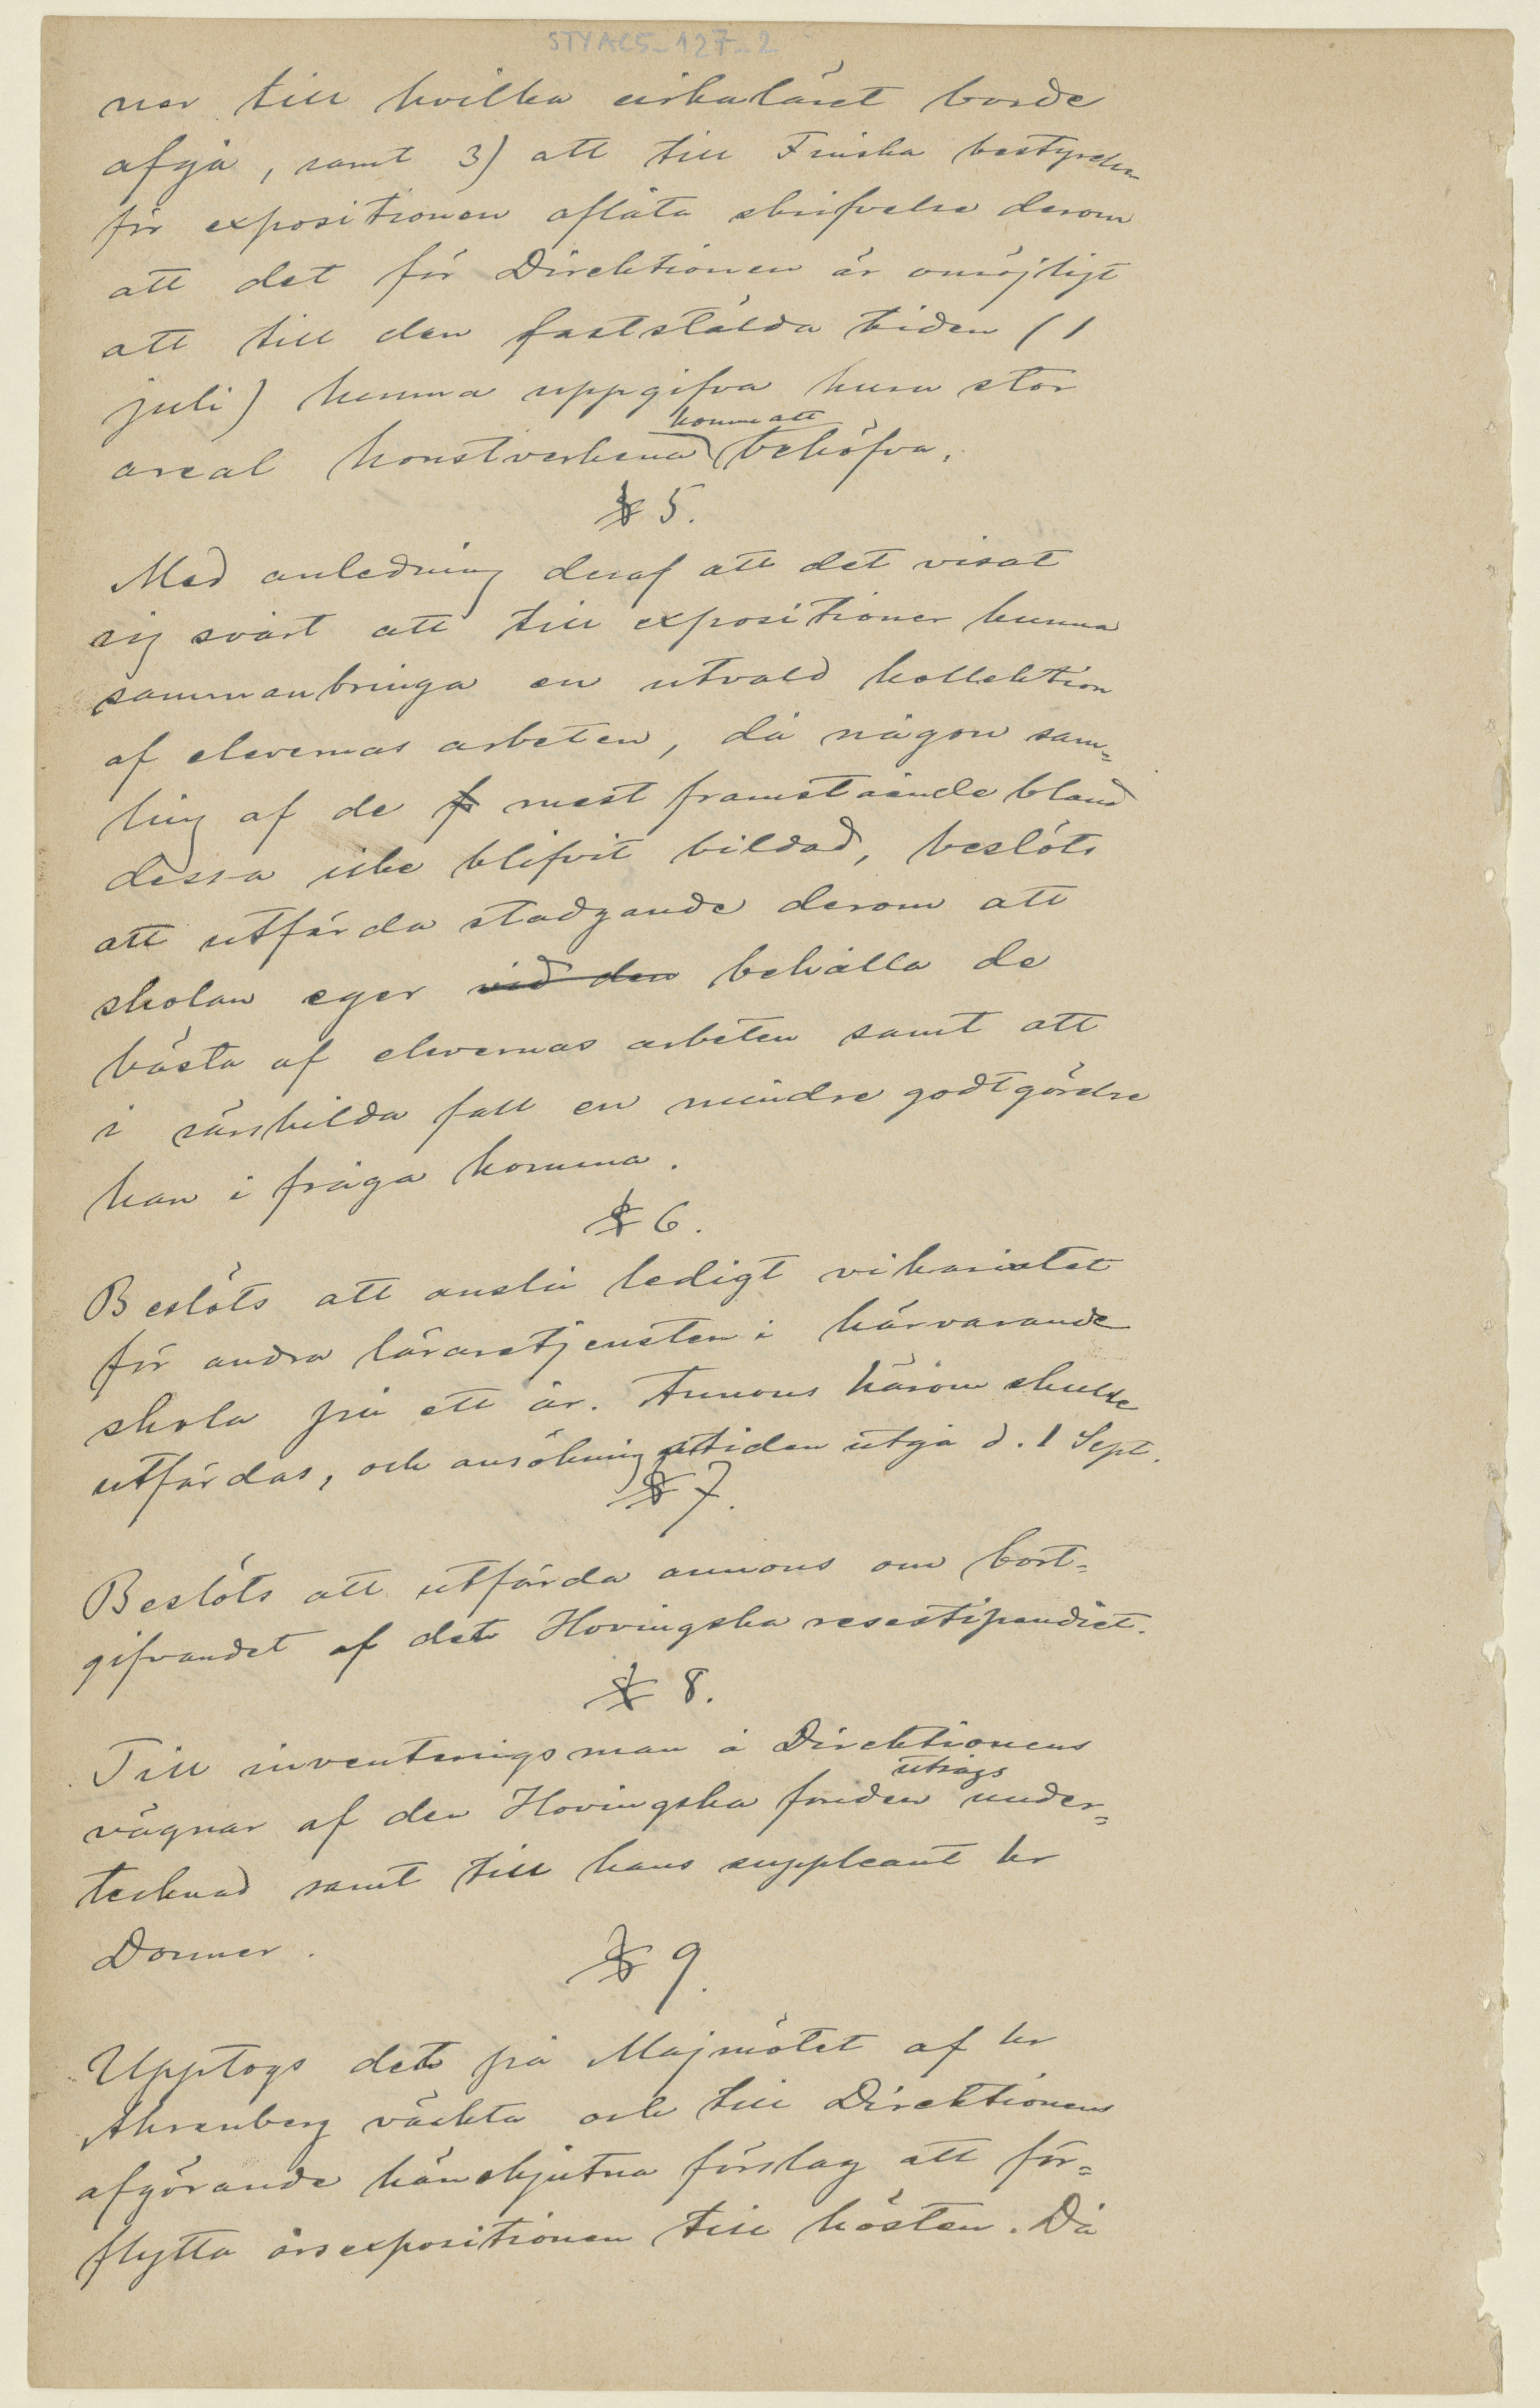 STYAC5-127-2
ner till hvilka cirkuläret borde
afgå, samt 3) att till Finska bestyrelsen
för expositionen aflåta skrifvelse derom
att det för Direktionen är omöjligt
att till den fastställda tiden (1
juli) kunna uppgifva huru stor
komme att
areal konstverkena behöfva.
§ 5.
Med anledning deraf att det visat
sig svårt att till expositioner kunna
sammanbringa en utvald kollektion
af elevernas arbeten, då någon sam=
ling af de f mest framstående bland
dessa icke blifvit bildad, beslöts
att utfärda stadgande derom att
skolan eger vid den behålla de
bästa af elevernas arbeten samt att
i särskilda fall en mindre godtgörelse
kan i fråga komma.
§ 6.
Beslöts att anslå ledigt vikariatet
för andra läraretjensten i härvarande
skola på ett år. Annons härom skulle
utfärdas, och ansökningstiden utgå d. 1 Sept.
§ 7.
Beslöts att utfärda annons om bort=
gifvandet af det Hovingska resestipendiet.
§ 8.
Till inventeringsman å Direktionens
utsågs
vägnar af den Hovingska fonden under=
tecknad samt till hans suppleant hr
Donner.
§ 9.
Upptogs det på Majmötet af hr
Ahrenberg väckta och till Direktionens
afgörande hänskjutna förslag att för=
flytta årsexpositionen till hösten. Då